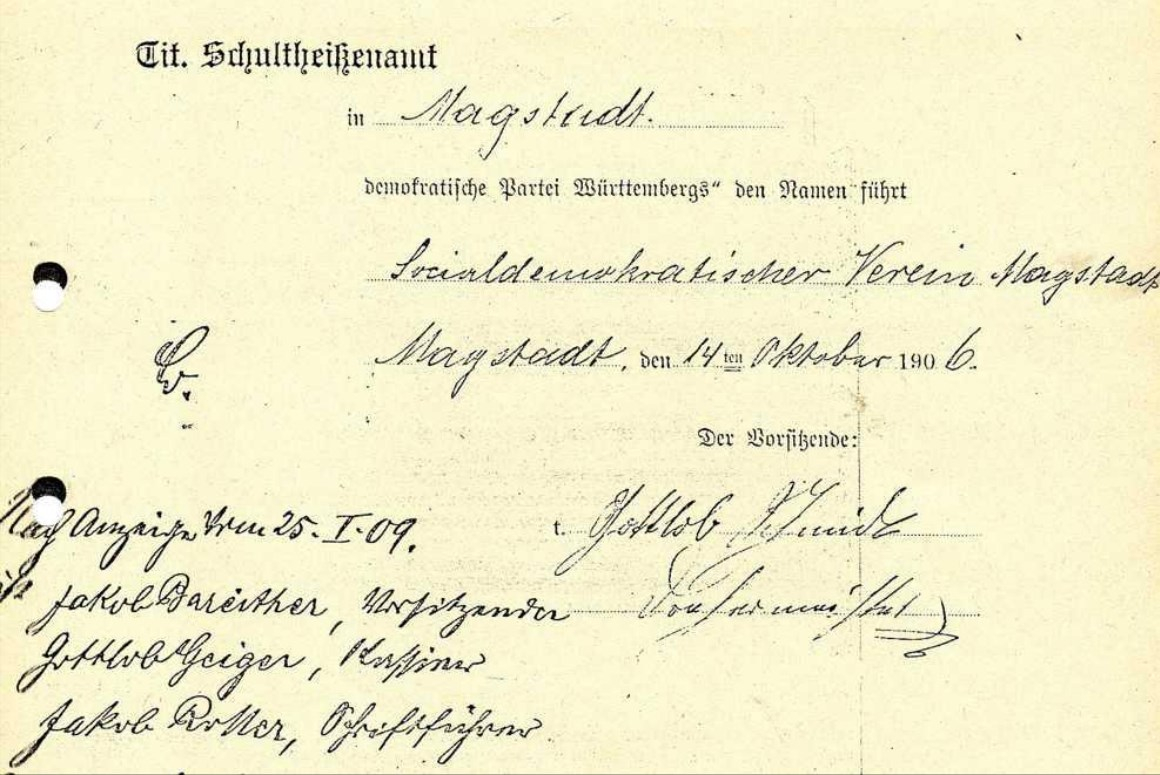 Tit. Schultheißenamt
in Magstadt.
demokratische Partei Württembergs“ den Namen führt
Socialdemokratischer Verein Magstadt
Magstadt, den 14ten Oktober 1906.
Der Vorsitzende:
t. Gottlob Schmidt
Nach Anzeige vom 25. I. 09.
Jakob Bareither, Vorsitzender
Gottlob Geiger, Kassier
Jakob Rotter, Schriftführer